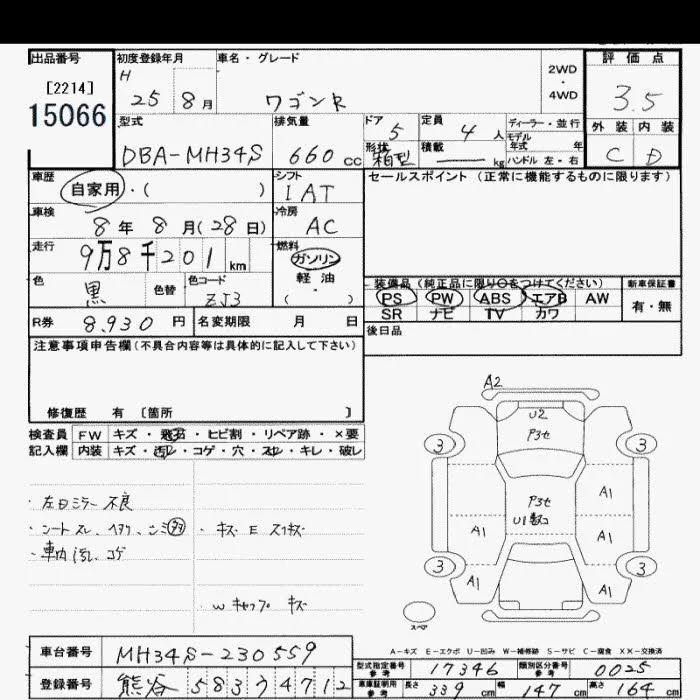 出品番号
[2214]
15066
初度登録年月
H
25 8月
車名・グレード
ワゴンR
2WD
・
4WD
評価点
3.5
外装 内装
C D
型式
DBA-MH34S
排気量
660cc
ドア
5
定員
4人
形状
箱型
積載
kg
ディーラー・並行
モデル
年式 年
ハンドル 左・右
車歴
自家用・( )
シフト
IAT
セールスポイント (正常に機能するものに限ります)
車検
8年 8月(28日)
冷房
AC
走行
9万8千201km
燃料
ガソリン
軽油
・
( )
色
黒
色替
色コード
ZJ3
装備品(純正品に限り○をつけてください)
PS PW ABS エアB AW
SR ナビ TV カワ
新車保証書
有・無
R券
8,930円
名変期限 月 日
後日品
注意事項申告欄(不具合内容等は具体的に記入して下さい)
修復歴 有 〔箇所 〕
検査員 FW キズ・飛石・ヒビ割・リペア跡・×要
記入欄 内装 キズ・汚レ・コゲ・穴・スレ・キレ・破レ
・左ドミラー不良
・車内汚レ、コゲ
W キャップ キズ
A2
U2
P3セ
3 3
P3セ
A1
A1
A1
3 3
A1
A1
スペア
A-キズ E-エクボ U-凹み W-補修跡 S-サビ C-腐食 XX-交換済
車台番号
MH34S-230559
登録番号
熊谷 583 た 4712
型式指定番号
参考
17346
類別区分番号
参考
0025
車庫証明用
参考
長さ 339cm 幅 147cm 高さ 164cm